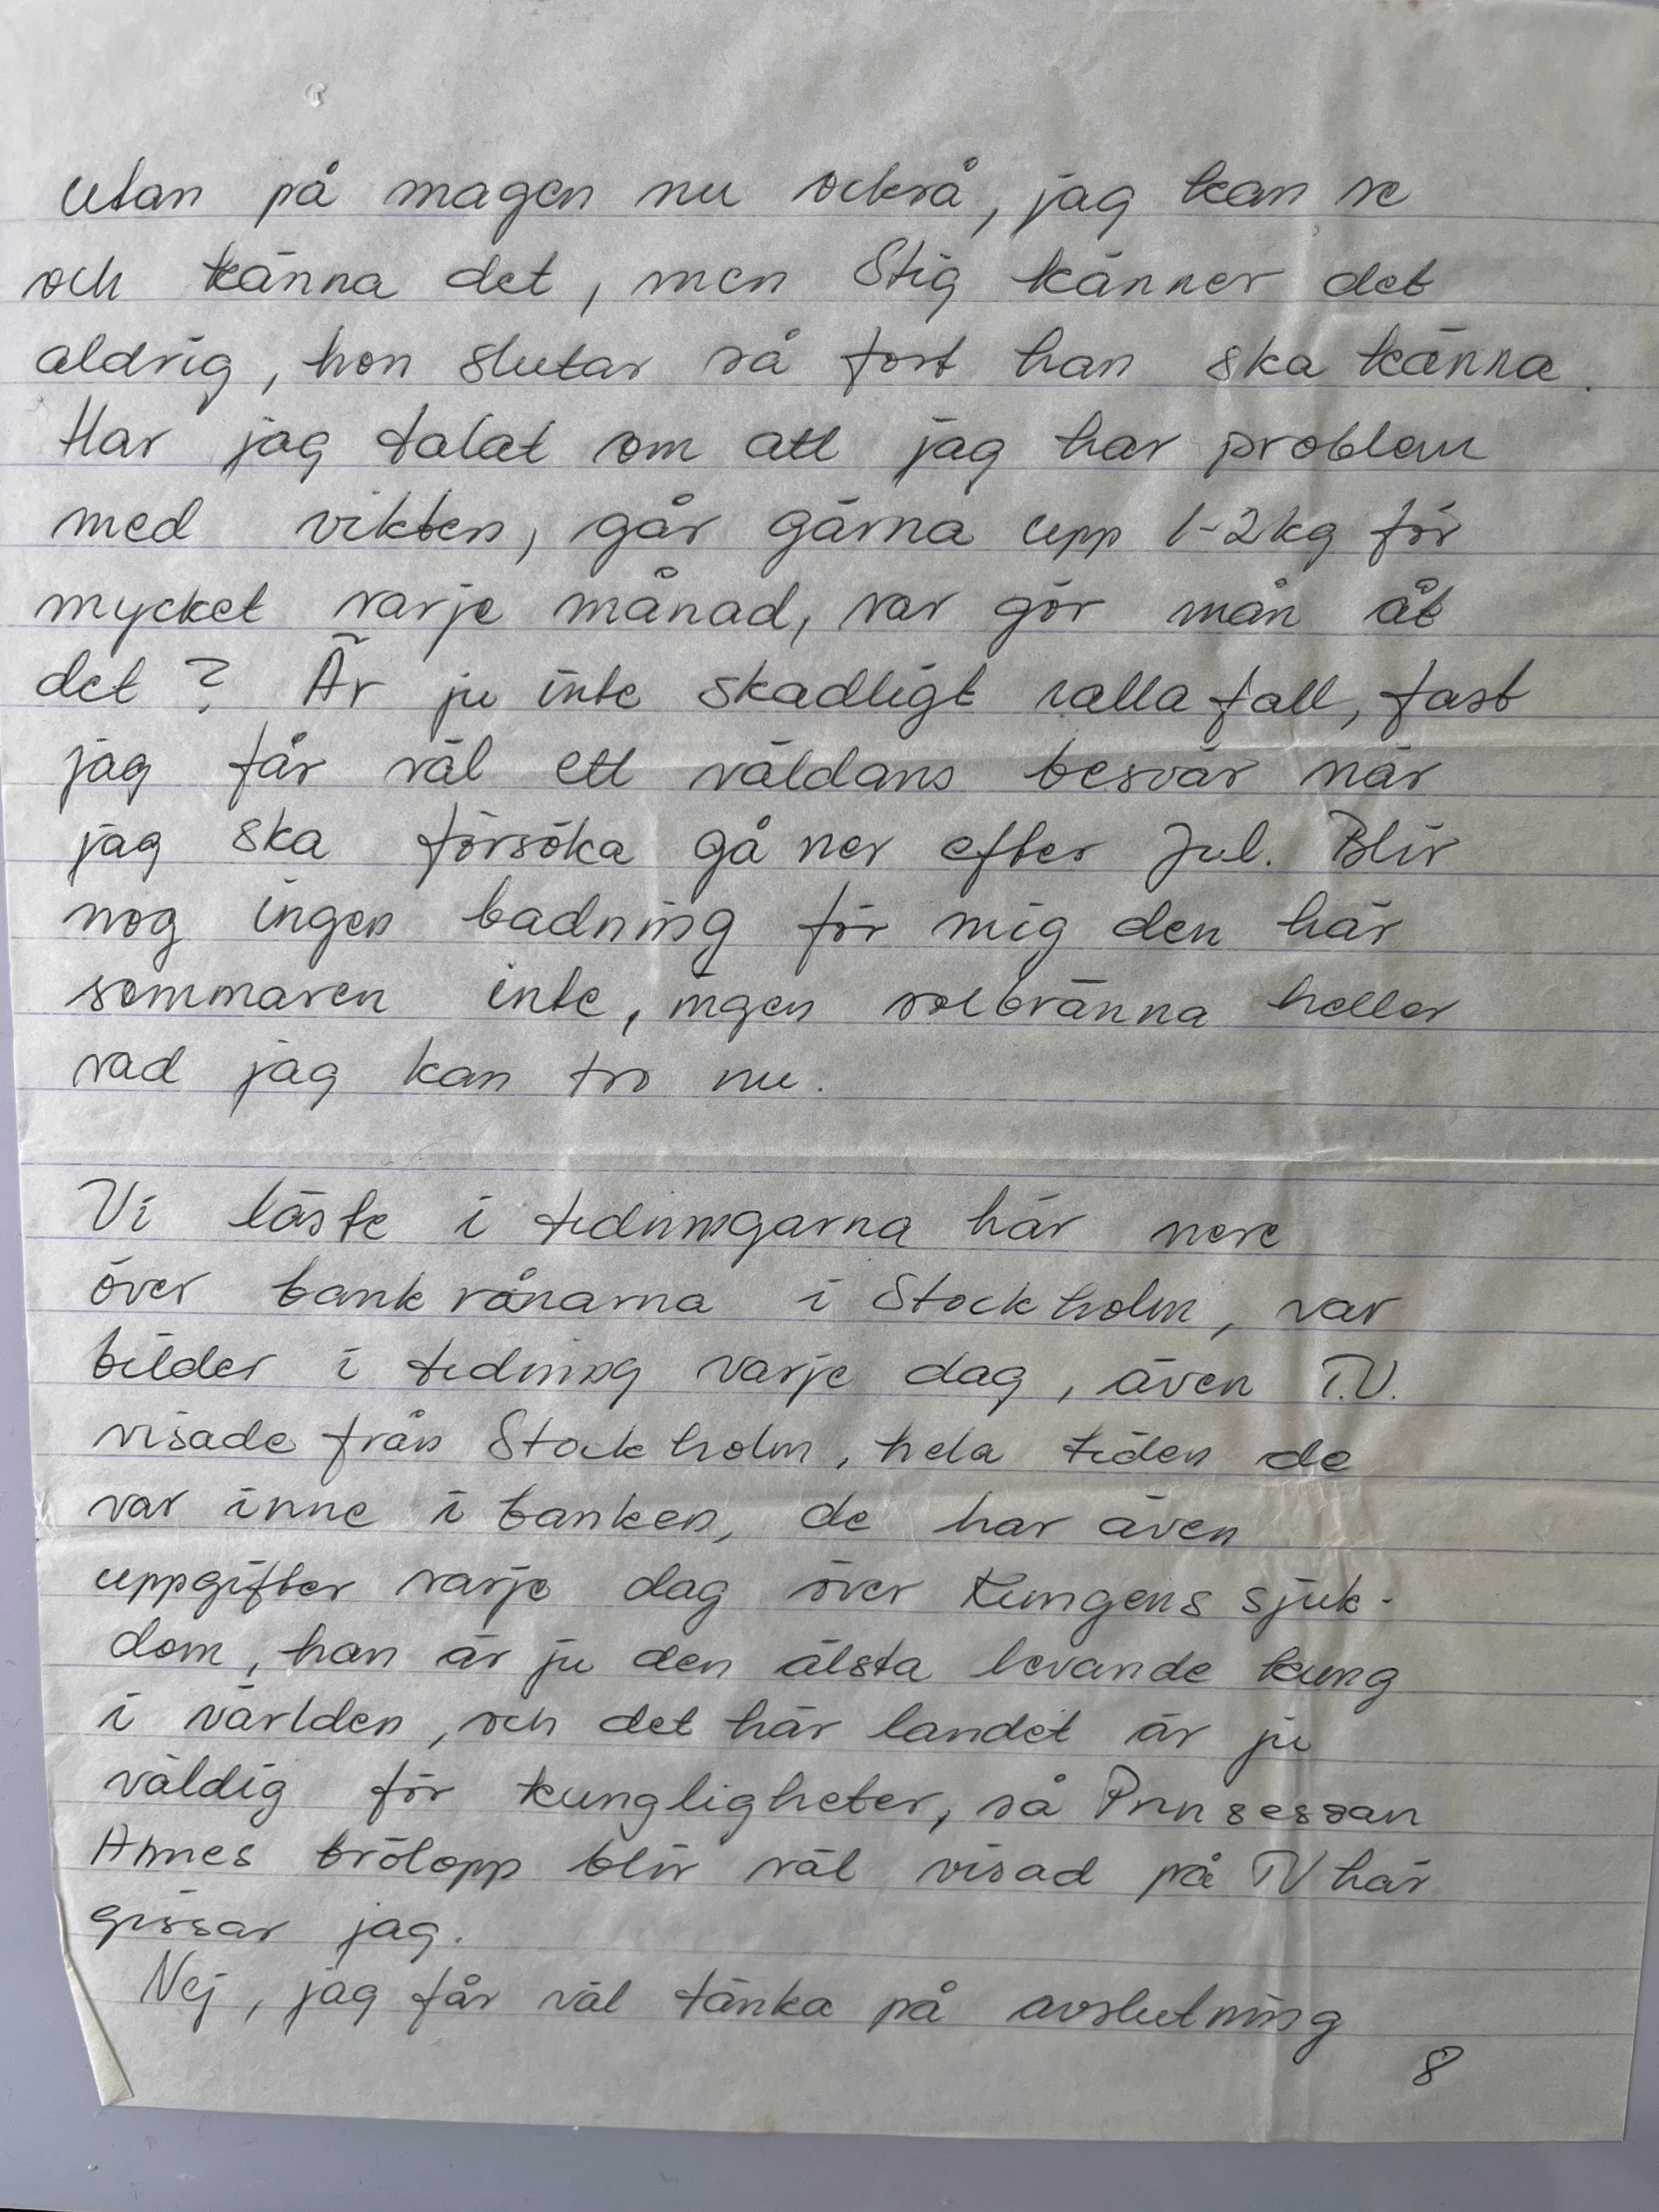 utan på magen nu också, jag kan se
och känna det, men Stig känner det
aldrig, hon slutar så fort han ska känna.
Har jag talat om att jag har problem
med vikten, går gärna upp 1-2 kg för
mycket varje månad, var gör mån åt
det? Är ju inte skadligt ialla fall, fast
jag får väl ett väldans besvär när
jag ska försöka gå ner efter Jul. Blir
nog ingen badning för mig den här
sommaren inte, ingen solbränna heller
vad jag kan tro nu.
Vi läste i tidningarna här nere
över bankrånarna i Stockholm, var
bilder i tidning varje dag, även T.V.
visade från Stockholm, hela tiden de
var inne i banken, de har även
uppgifter varje dag över Kungens sjuk-
dom, han är ju den älsta levande kung
i världen, och det här landet är ju
väldig för kungligheter, så Prinsessan
Annes brölopp blir väl visad på TV här
gissar jag.
Nej, jag får väl tänka på avslutning
8